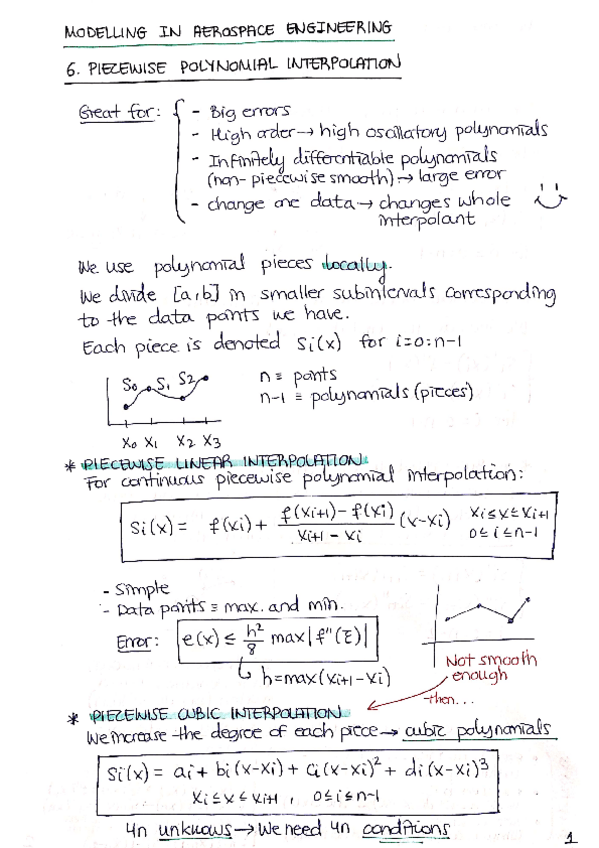 MODELLING IN AEROSPACE ENGINEERING
6. PIEZEWISE POLYNOMIAL INTERPOLATION
Great for: { - Big errors
- High order → high oscillatory polynomials
- Infinitely differentiable polynomials
(non-piecewise smooth) → large error
- change one data → changes whole
interpolant
We use polynomial pieces locally.
We divide [a,b] in smaller subintervals corresponding
to the data points we have.
Each piece is denoted Si(x) for i=0:n-1
S0 S1 S2
n ≡ points
n-1 ≡ polynomials (pieces)
X0 X1 X2 X3
* PIECEWISE LINEAR INTERPOLATION
For continuous piecewise polynomial interpolation:
Si(x) = f(xi) + (f(xi+1) - f(xi)) / (xi+1 - xi) (x-xi) xi ≤ x ≤ xi+1
0 ≤ i ≤ n-1
- Simple
- Data points ≡ max. and min.
Error: e(x) ≤ h²/8 max|f''(ξ)|
↳ h=max(xi+1-xi)
Not smooth
enough
then...
* PIEZEWISE CUBIC INTERPOLATION
We increase the degree of each piece → cubic polynomials
Si(x) = ai + bi(x-xi) + ci(x-xi)² + di(x-xi)³
xi ≤ x ≤ xi+1 , 0 ≤ i ≤ n-1
4n unknows → We need 4n conditions
1